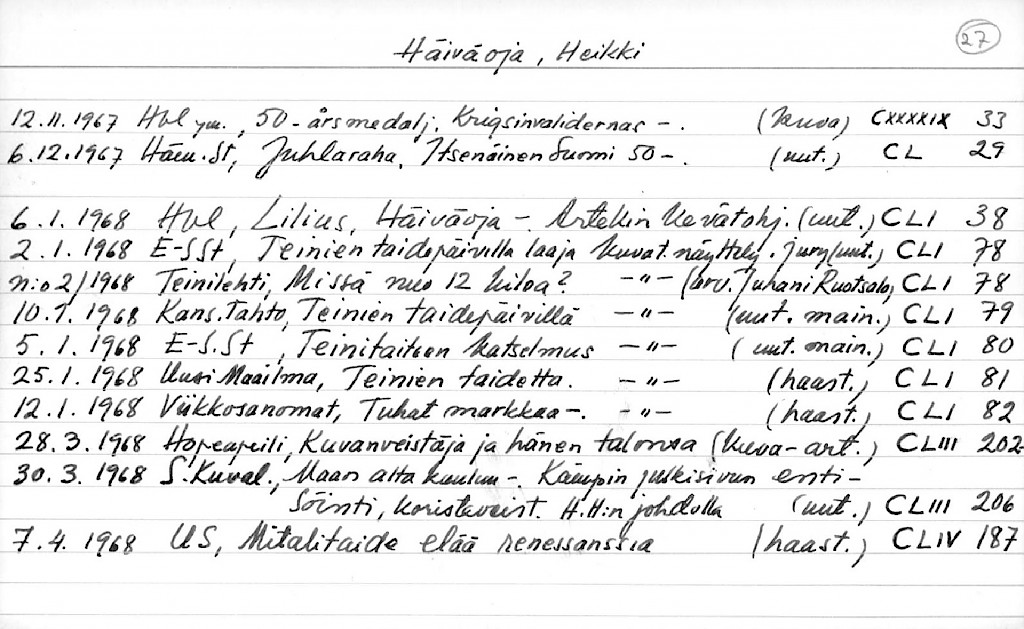 27
Häiväoja, Heikki
12.11.1967 Hbl ym., 50-årsmedalj. Krigsinvalidernas -. (kuva) CXXXXIX 33
6.12.1967 Häm.St, Juhlaraha, Itsenäinen Suomi 50-. (uut.) CL 29
6.1.1968 Hbl, Lilius, Häiväoja - Artekin kevätohj. (uut.) CLI 38
2.1.1968 E-SSt, Teinien taidepäivillä laaja kuvat. näyttely. jury (uut.) CLI 78
n:o 2/1968 Teinilehti, Missä nuo 12 kiloa? -"- (arv. Juhani Ruotsalo) CLI 78
10.1.1968 Kans.Tahto, Teinien taidepäivillä -"- (uut. main.) CLI 79
5.1.1968 E-S.St, Teinitaiteen katselmus -"- (uut. main.) CLI 80
25.1.1968 Uusi Maailma, Teinien taidetta. -"- (haast.) CLI 81
12.1.1968 Viikkosanomat, Tuhat markkaa-. -"- (haast.) CLI 82
28.3.1968 Hopeapeili, Kuvanveistäjä ja hänen talonsa (kuva-art.) CLIII 202
30.3.1968 S.Kuval., Maan alta kuuluu-. Kämpin julkisivun enti-
söinti, koristeveist. H.H:n johdolla (uut.) CLIII 206
7.4.1968 US, Mitalitaide elää renessanssia (haast.) CLIV 187